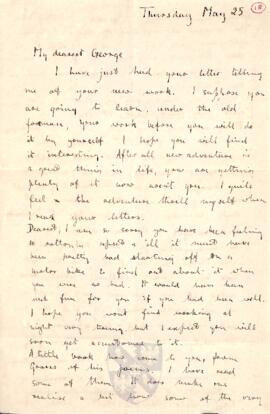 Thursday May 25
18
My dearest George
I have just had your letter telling
me of your new work. I suppose you
are going to learn, under the old
foreman, your work before you will do
it by yourself I hope you will find
it interesting. After all new adventure is
a good thing in life, you are getting
plenty of it now aren't you. I quite
feel the adventure thrill myself when
I read your letters.
Dearest, I am so sorry you have been feeling
so rottenly & ill it must have
been pretty bad starting off on a
motor bike to find out about it when
you were so bad. It would have been
such fun for you if you had been well.
I hope you wont find working at
night very tiring but I expect you will
soon get accustomed to it.
A little book has come to you, from
Graves of his poems. I have read
some of them. It does make one
realise a bit how some of the very